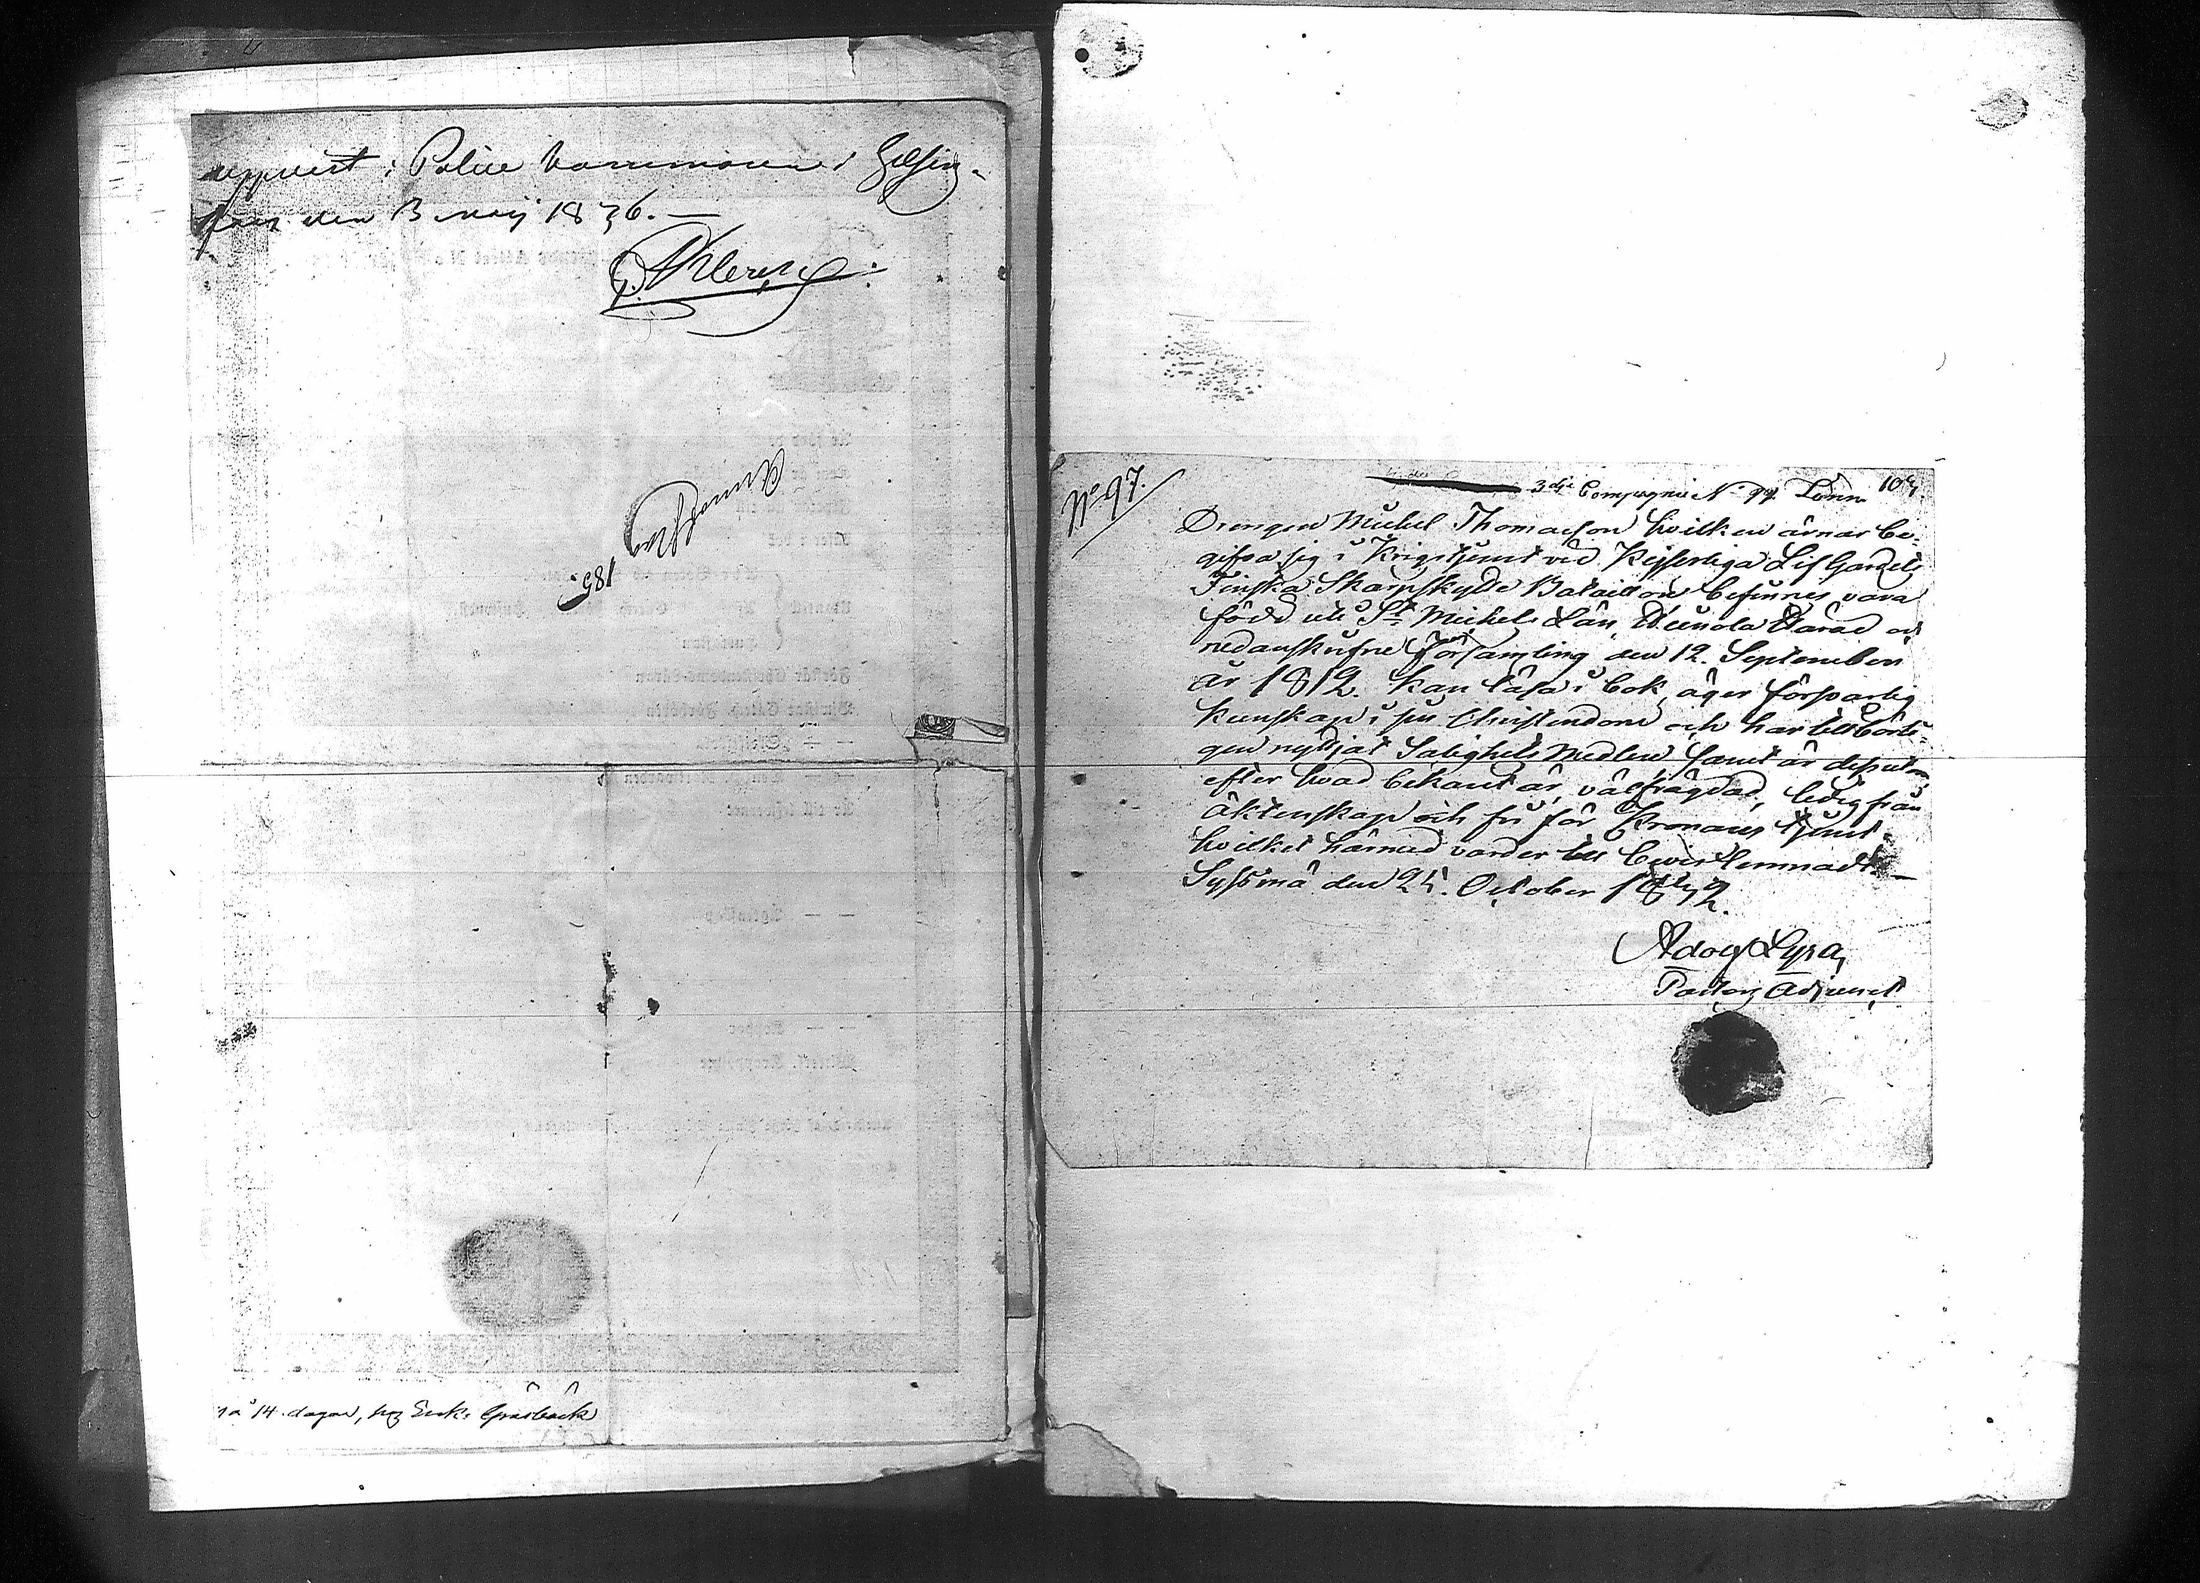 uppvist i Police Kammaren i Helsing-
fors den 3 Maij 1836. —
185
på 14 dagar, hos Enk: Gråsbäck
No 97.
3dje Compagnie N 99. Lönn
107.
Drengen Michel Thomasson hvilken ärnar be-
gifva sig i Krigstjenst vid Kejserliga Lif Gardets
Finska Skarpskytte Bataillon befinnes vara
född uti St Michels Län, Heinola Härad och
nedanskrifne Församling den 12. September
år 1812. Kan läsa i bok, äger försvarlig
kunskap i sin Christendom och har tillbörli-
gen nyttjat Salighets Medlen, samt är dessutom,
efter hvad bekant är, välfrägdad, ledig från
äktenskap och fri för Kronans tjenst
hvilket härmed varder till bevis lemnadt. —
Syssmä den 25. October 1832.
Adolf Lyra,
Pastors Adjunct